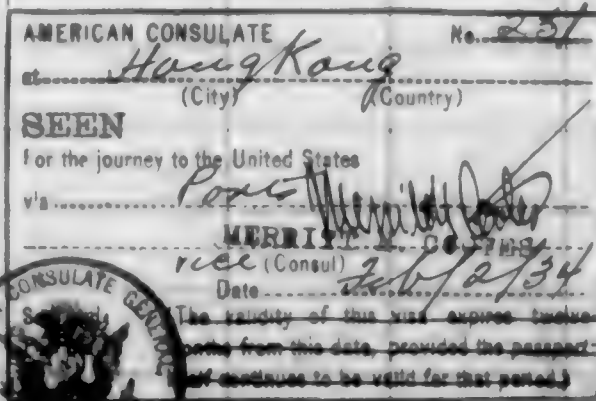 AMERICAN CONSULATE No. 231
at Hong Kong
(City) (Country)
SEEN
For the journey to the United States
via Ports
MERRITT N. COOTES
vice (Consul)
Date Feb/2/34
CONSULATE GENERAL
(The validity of this visa expires twelve
months from this date, provided the passport
itself continues to be valid for that period.)